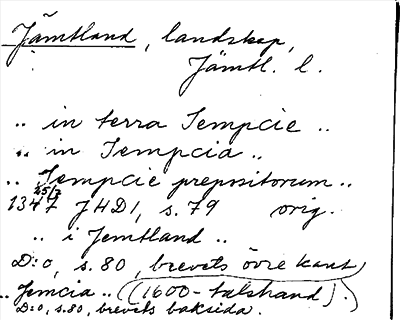 Jämtland, landskap,
Jämtl. l.
.. in terra Iempcie ..
.. in Iempcia ..
.. Iempcie prepositorum ..
25/7
1347 JHD 1, s. 79 orig.
.. i Jemtland ..
D:o, s. 80, brevets övre kant
.. Jemcia .. ((1600-talshand).)
D:o, s. 80, brevets baksida.